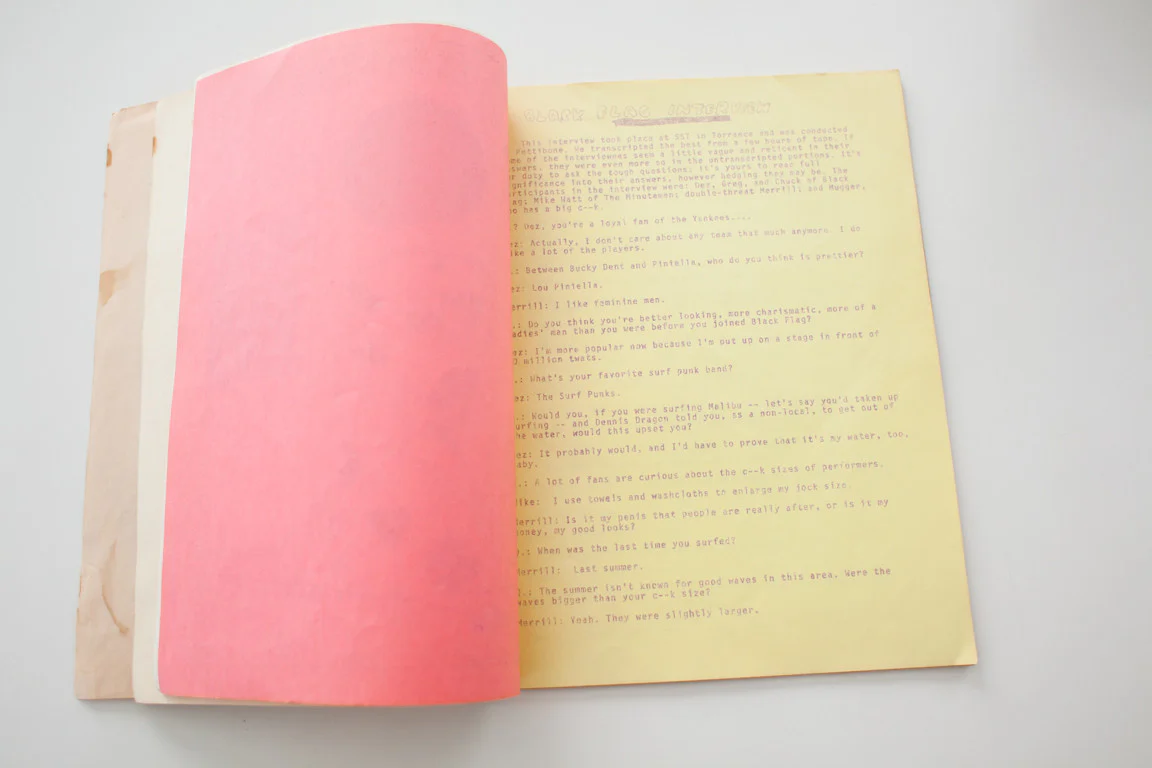 BLACK FLAG INTERVIEW
This interview took place at SST in Torrance and was conducted
Pettibone. He transcripted the best from a few hours of tape. If
me of the interviewees seem a little vague and reticent in their
swers, they were even more so in the untranscripted portions. It's
r duty to ask the tough questions; it's yours to read full
gnificance into their answers, however hedging they may be. The
rticipants in the interview were: Dez, Greg, and Chuck of Black
ag; Mike Watt of The Minutemen; double-threat Merrill; and Mugger,
o has a big c--k.
.? Dez, you're a loyal fan of the Yankees....
ez: Actually, I don't care about any team that much anymore. I do
ke a lot of the players.
.: Between Bucky Dent and Piniella, who do you think is prettier?
ez: Lou Piniella.
errill: I like feminine men.
.: Do you think you're better looking, more charismatic, more of a
adies' man than you were before you joined Black Flag?
ez: I'm more popular now because I'm put up on a stage in front of
million twats.
.: What's your favorite surf punk band?
ez: The Surf Punks.
.: Would you, if you were surfing Malibu -- let's say you'd taken up
urfing -- and Dennis Dragon told you, as a non-local, to get out of
he water, would this upset you?
ez: It probably would, and I'd have to prove that it's my water, too,
aby.
.: A lot of fans are curious about the c--k sizes of performers.
ike: I use towels and washcloths to enlarge my jock size.
errill: Is it my penis that people are really after, or is it my
oney, my good looks?
.: When was the last time you surfed?
Merrill: Last summer.
.: The summer isn't known for good waves in this area. Were the
waves bigger than your c--k size?
Merrill: Yeah. They were slightly larger.